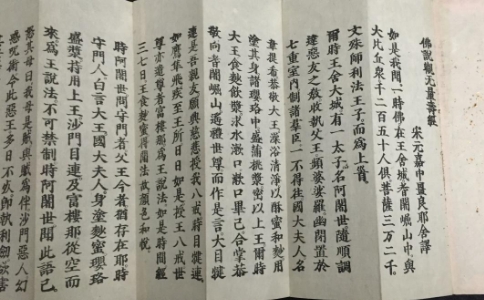 佛說觀无量壽經
宋元嘉中畺良耶舍譯
如是我聞一時佛在王舍城耆闍崛山中與
大比丘衆千二百五十人俱菩薩三万二千
文殊師利法王子而為上首
尒時王舍大城有一太子名阿闍世隨順調
達惡友之教收執父王頻婆娑羅幽閉置於
七重室内制諸羣臣一不得往國大夫人名
韋提希恭敬大王澡浴清淨以酥蜜和麨用
塗其身諸瓔珞中盛蒲桃漿密以上王尒時
大王食麨飲漿求水漱口漱口畢已合掌恭
敬向耆闍崛山遥禮世尊而作是言大目犍
連是吾親友願興慈悲授我八戒時目犍連
如鷹隼飛疾至王所日日如是授王八戒世
尊亦遣尊者富樓那為王說法如是時間經
三七日王食麨蜜得聞法故顔色和悅
時阿闍世問守門者父王今者猶存在耶時
守門人白言大王國大夫人身塗麨蜜瓔珞
盛漿持用上王沙門目連及富樓那從空而
來為王說法不可禁制時阿闍世聞此語已
怒其母曰我母是賊與賊為伴沙門惡人幻
惑呪術令此惡王多日不死即執利劒欲害